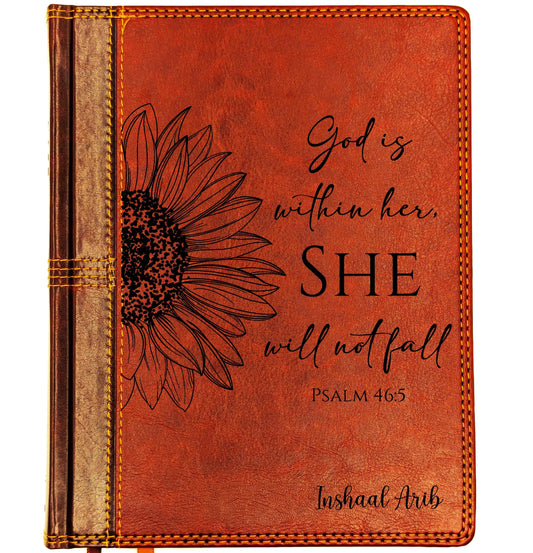 God is
within her,
SHE
will not fall
PSALM 46:5
Inshaal Arib